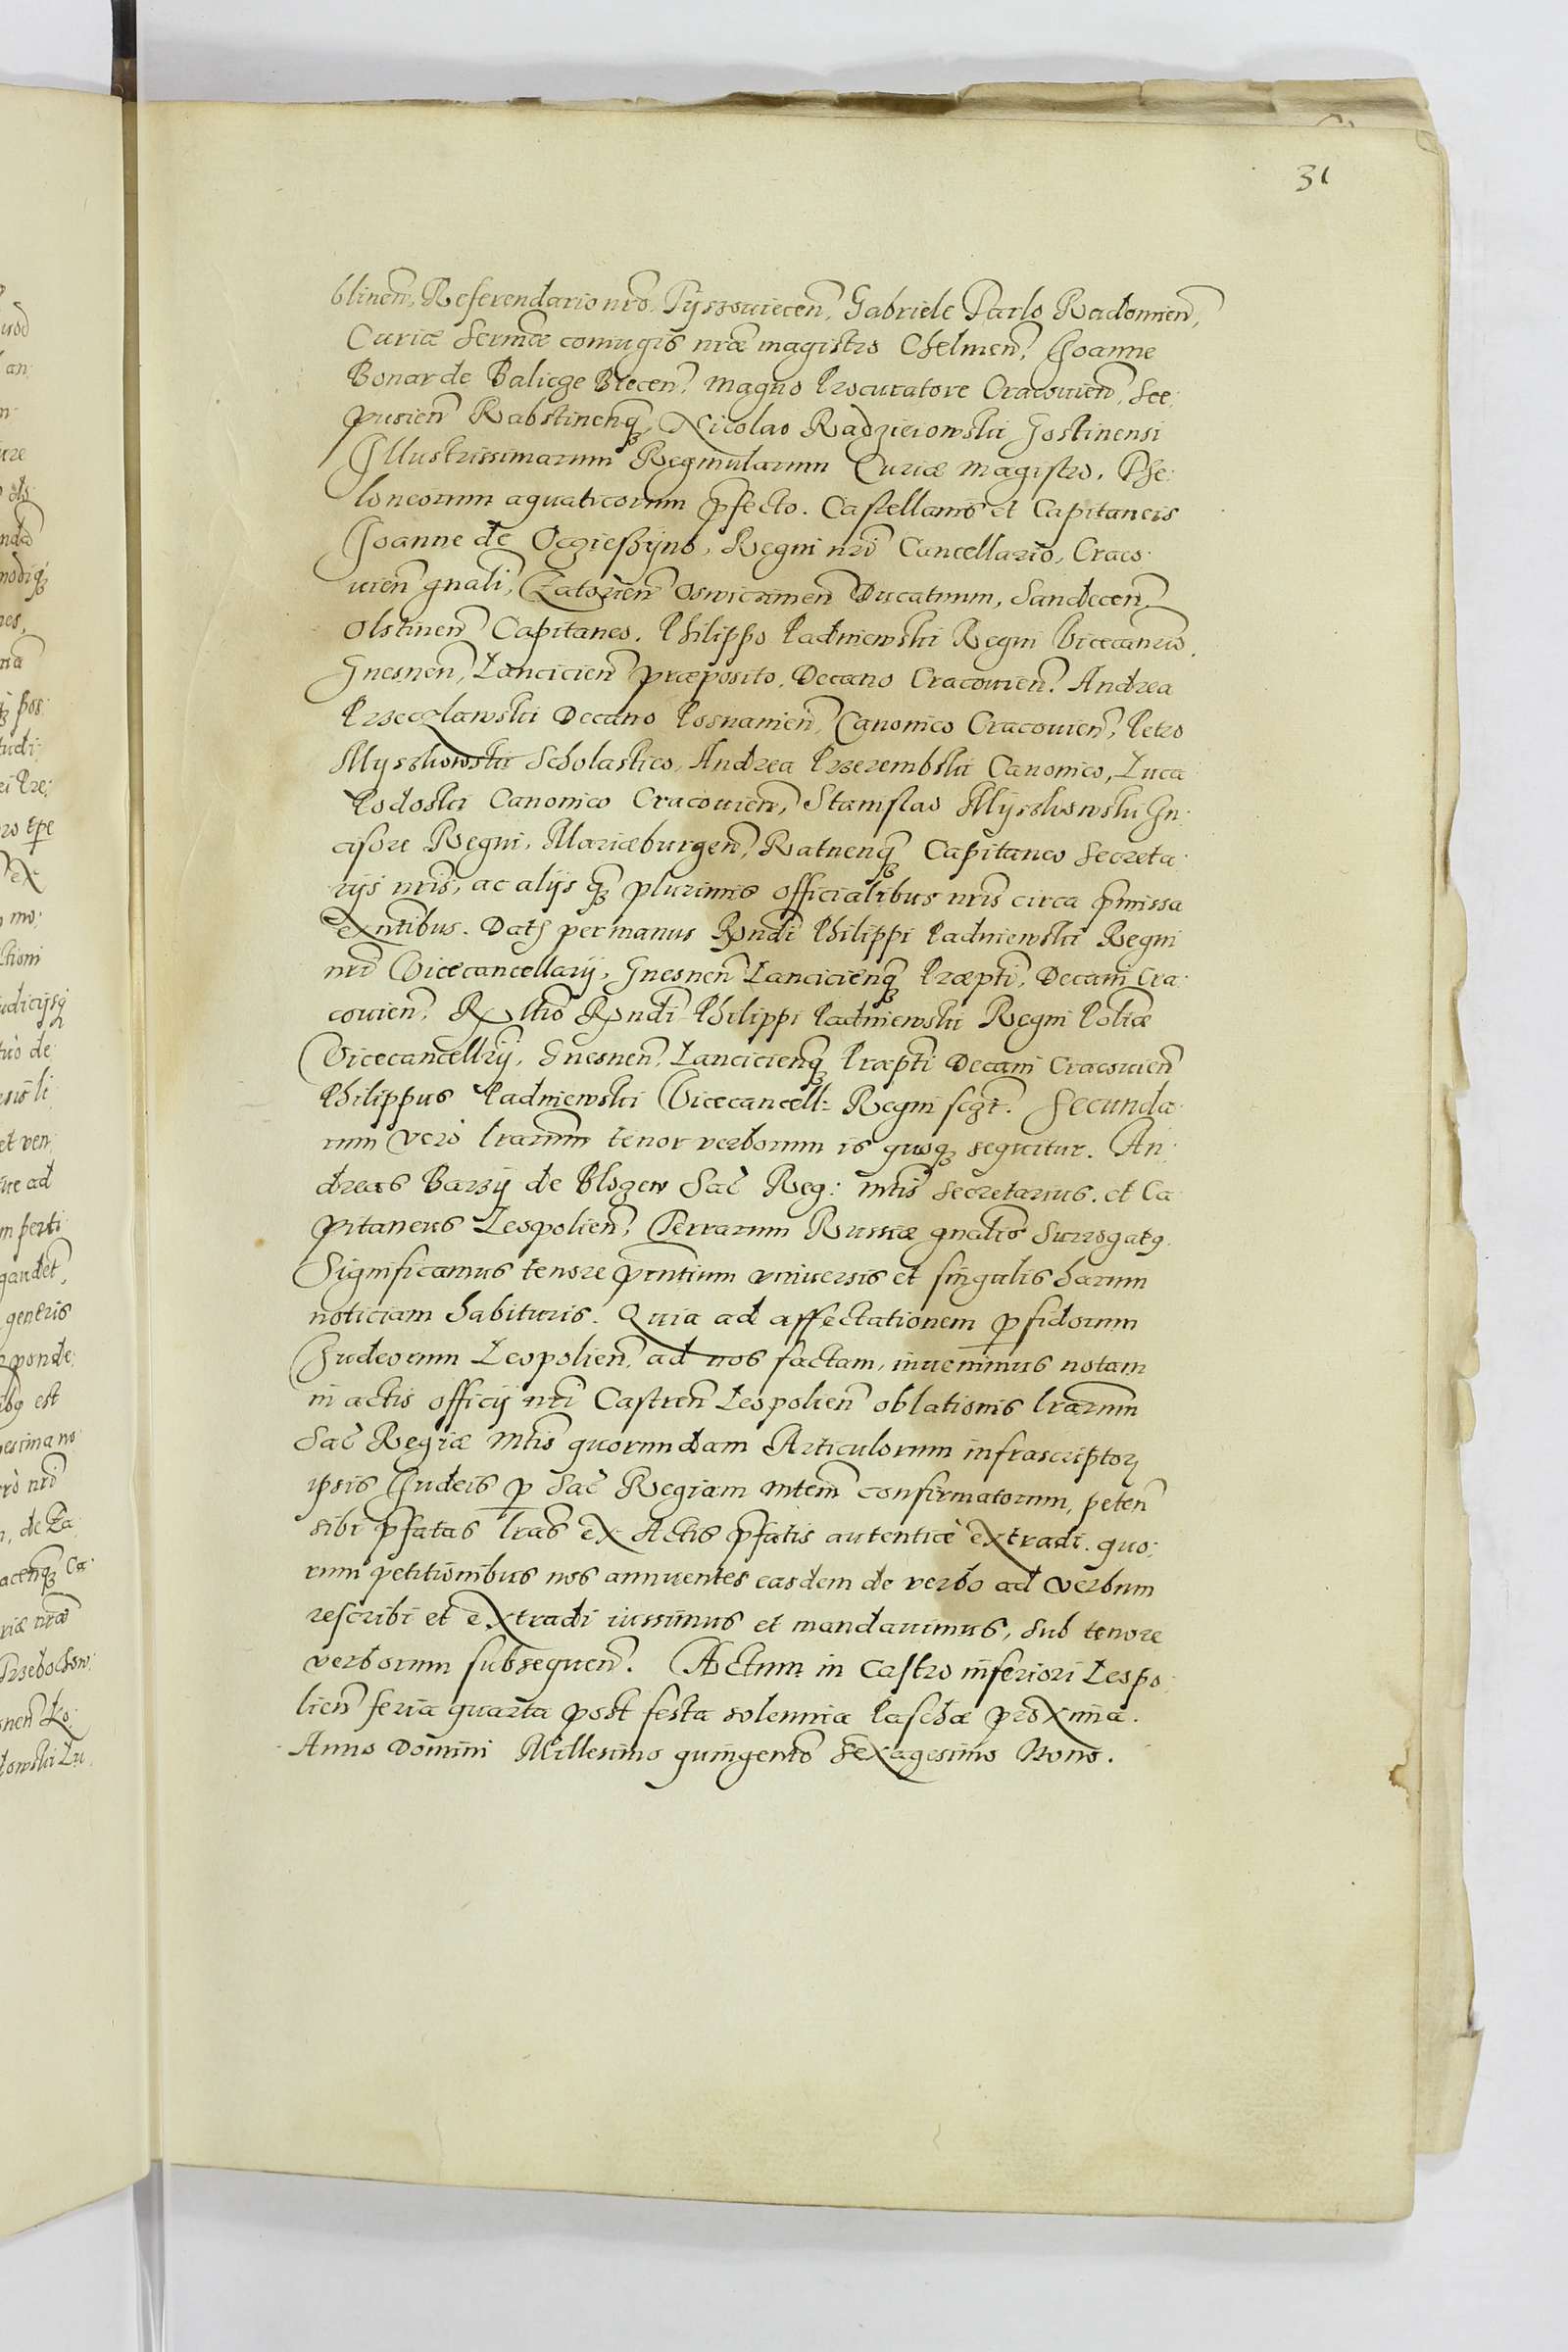 31
blinen̄, Referendario nr̄o, Pyszowiecen̄, Gabriele Tarlo Radomien̄,
Curiæ Sermæ coniugis nr̄æ magistro Chelmen̄, Joanne
Bonar de Balicze Biecen̄, Magno Procuratore Cracouien̄, See:
pusien̄ Rabstinenq̄ꝫ, Nicolao Radzieiowski Gostinensi
Illustrissimarum Reginularum Curiæ Magistro. The:
loneorum aquaticorum p̄fecto. Castellanis et Capitaneis
Joanne de Oczießyno, Regni nr̄i Cancellario, Craco:
uien̄ gnāli, Zatorien̄ Oswicimen̄ Ducatuum, Sandecen̄
Olstinen̄ Capitaneo. Philippo Padniewski Regni Vicecanrio,
Gnesnen̄, Lancicien̄ præposito, Decano Cracouien̄. Andrea
Przeczlawski Decano Posnanien̄, Canonico Cracouien̄, Petro
Myszkowski Scholastico, Andrea Przerembski Canonico, Luca
Podoski Canonico Cracouien̄, Stanislao Myszkowski In:
cisore Regni, Mariæburgen̄, Ratnenq̄ꝫ Capitaneo Secreta:
rijs nr̄is, ac alijs q̄ꝫ plurimis officialibus nr̄is circa p̄missa
exn̄tibus. Datꝫ per manus Rp̄ndi Philippi Padniewski Regni
nr̄i Vicecancellarij, Gnesnen̄ Lancicienq̄ꝫ Præpti, Decani Cra:
couien̄. Rx lt̄io Rp̄ndi Philippi Padniewski Regni Poliæ
Vicecancellrij, Gnesnen̄, Lancicienq̄ꝫ Præpti Decani Cracouien̄
Philippus Padniewski Vicecancell: Regni sczt̄. Secunda:
rum verò lrārum tenor verborum is quoqꝫ sequitur. An:
dreas Barzij de Blozew Sac̄ Reg: Mt̄is Secretarius. et Ca
pitaneus Leopolien̄, Terrarum Russiæ gnālis Surrogatꝯ.
Significamus tenore pn̄tium vniuersis et singulis harum
noticiam habituris. Quia ad affectationem ꝑfidorum
Judeorum Leopolien̄, ad nos factam, inuenimus notam
in actis officij nr̄i Castren̄ Leopolien̄ oblationis lrārum
Sac̄ Regiæ Mt̄is quorundam Articulorum infrascriptoꝝ
ipsis Judeis ꝑ Sac̄ Regiam Mtem̄ confirmatorum, peten̄
sibi p̄fatas lrās ex Actis p̄fatis autenticè extradi. quo:
rum petitionibus nos annuentes easdem de verbo ad verbum
rescribi et extradi iussimus et mandauimus, sub tenore
verborum subsequen̄. Actum in Castro inferiori Leopo:
lien̄ feria quarta post festa solennia Paschæ proxima.
Anno Domini Millesimo quingen̄to Sexagesimo Nono.